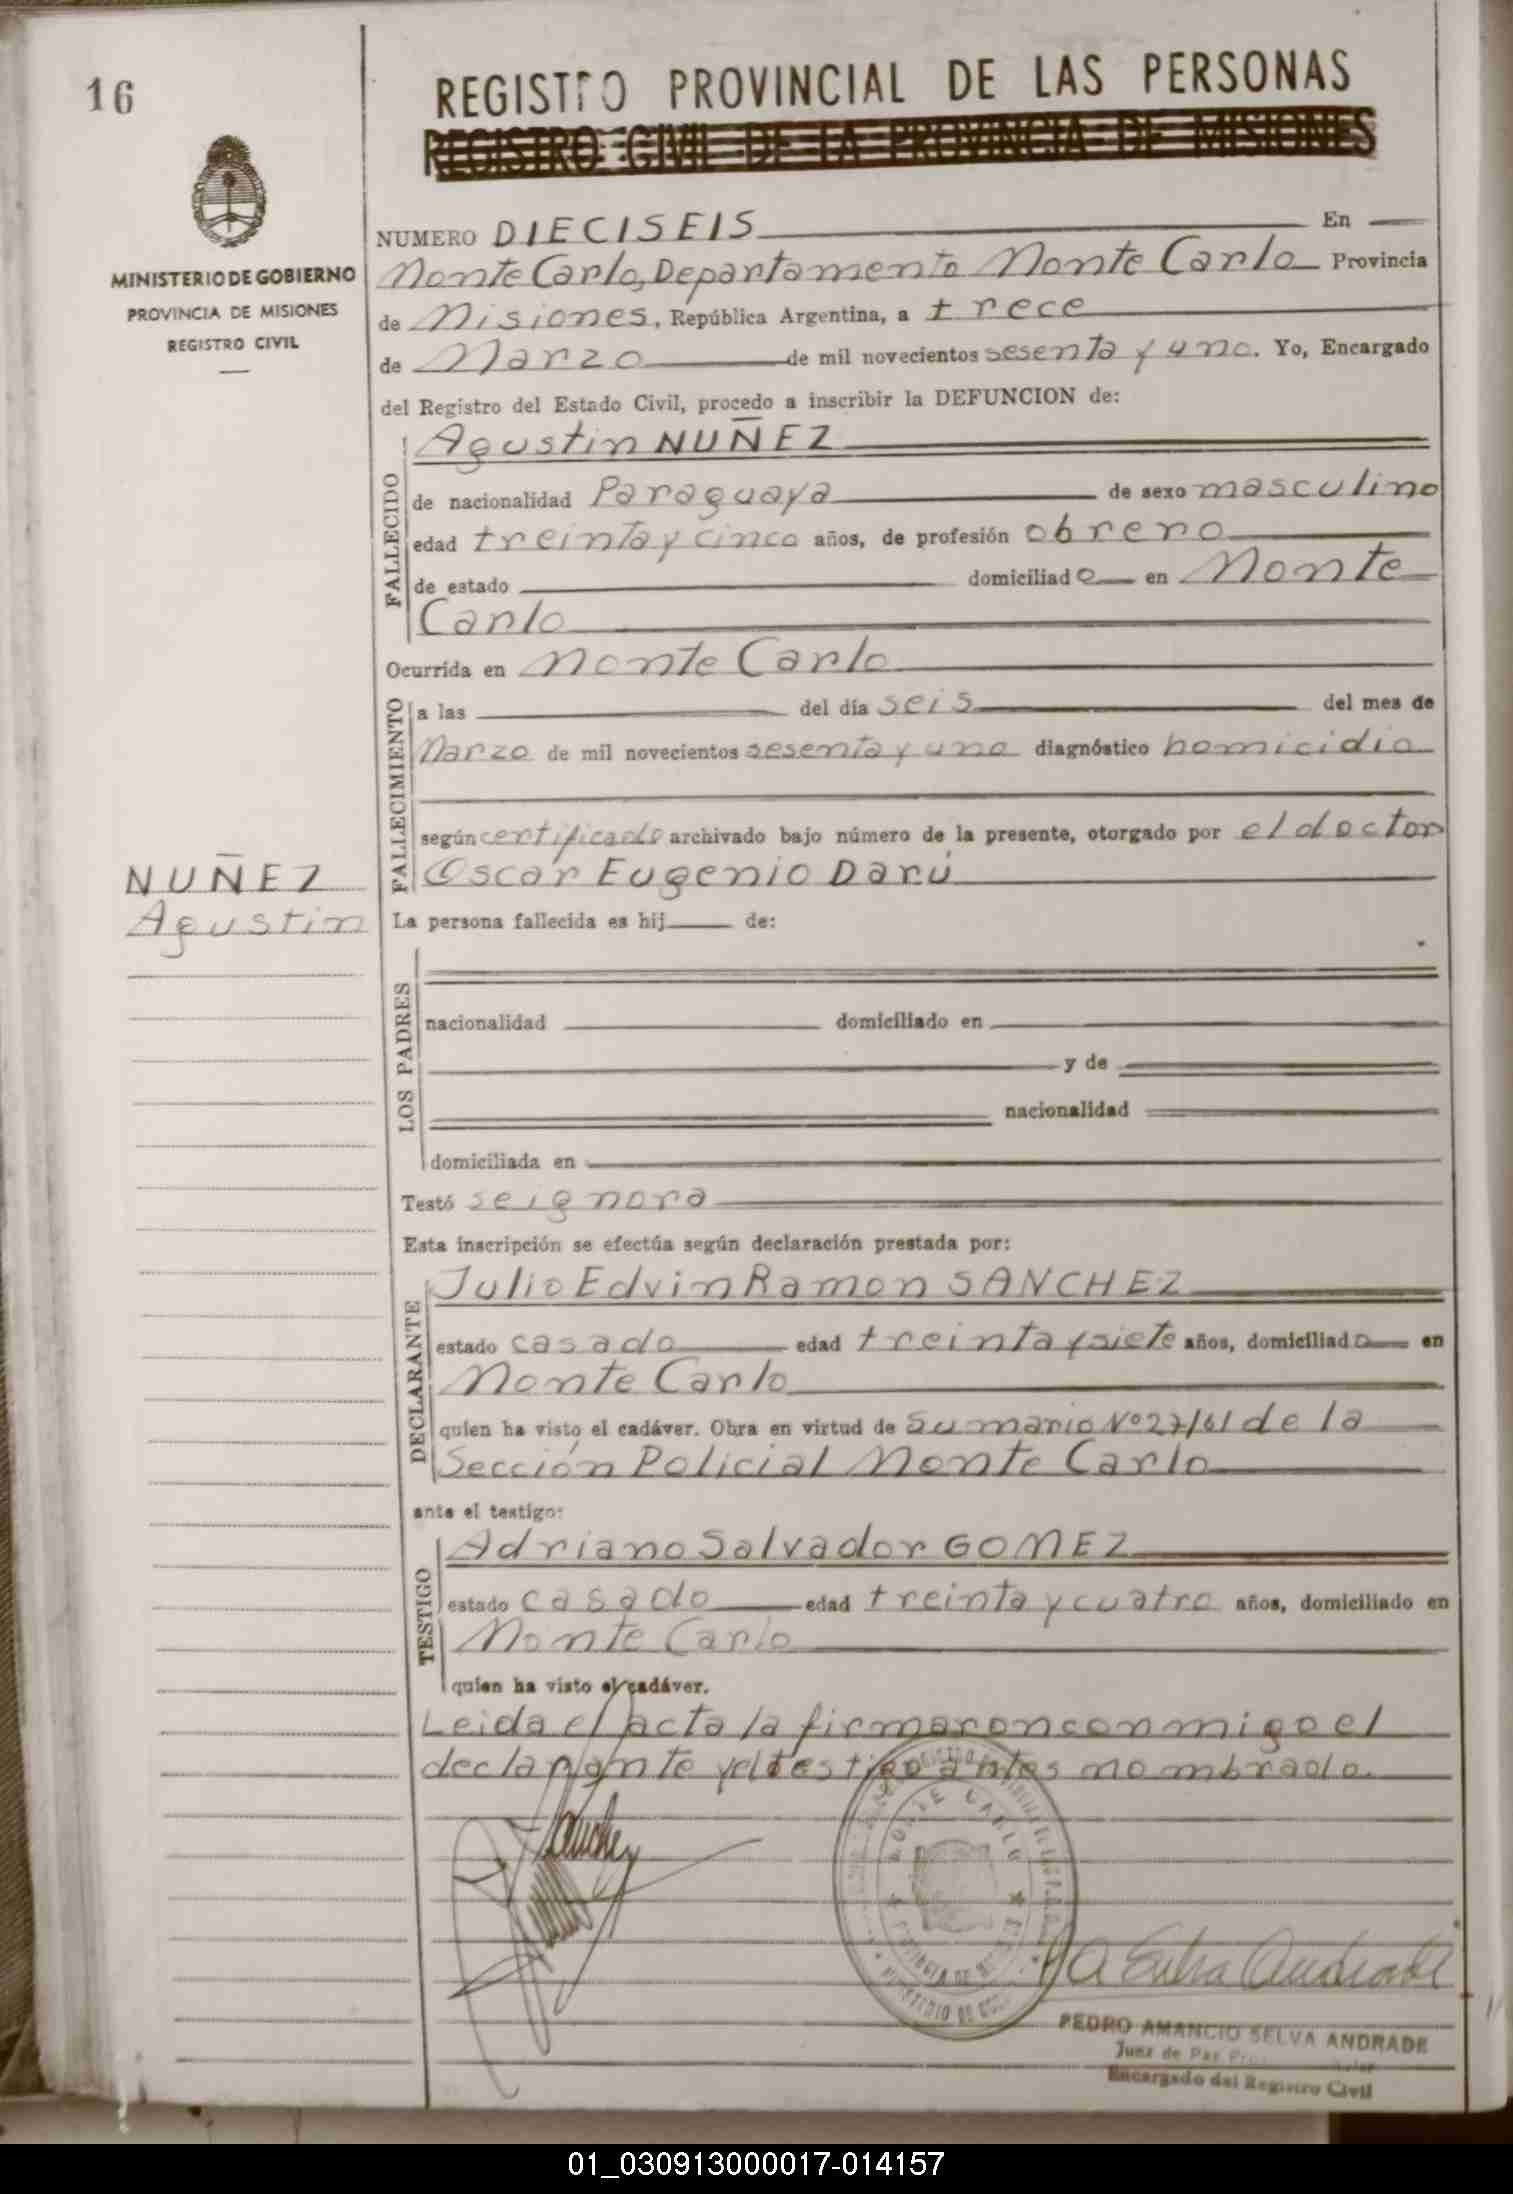 16
REGISTRO PROVINCIAL DE LAS PERSONAS
REGISTRO CIVIL DE LA PROVINCIA DE MISIONES
MINISTERIO DE GOBIERNO
PROVINCIA DE MISIONES
REGISTRO CIVIL
NUMERO DIECISEIS En
Monte Carlo, Departamento Monte Carlo Provincia
de Misiones, República Argentina, a trece
de Marzo de mil novecientos sesenta y uno. Yo, Encargado
del Registro del Estado Civil, procedo a inscribir la DEFUNCION de:
FALLECIDO
Agustin NUÑEZ
de nacionalidad Paraguaya de sexo masculino
edad treinta y cinco años, de profesión obrero
de estado domiciliado en Monte
Carlo
Ocurrida en Monte Carlo
FALLECIMIENTO
a las del día seis del mes de
Marzo de mil novecientos sesenta y uno diagnóstico homicidio
según certificado archivado bajo número de la presente, otorgado por el doctor
Oscar Eugenio Darú
NUÑEZ
Agustin
La persona fallecida es hij de:
LOS PADRES
nacionalidad domiciliado en
y de
nacionalidad
domiciliada en
Testó se ignora
Esta inscripción se efectúa según declaración prestada por:
DECLARANTE
Julio Edvin Ramon SANCHEZ
estado casado edad treinta y siete años, domiciliado en
Monte Carlo
quien ha visto el cadáver. Obra en virtud de Sumario Nº 27/61 de la
Sección Policial Monte Carlo
ante el testigo:
TESTIGO
Adriano Salvador GOMEZ
estado casado edad treinta y cuatro años, domiciliado en
Monte Carlo
quien ha visto el cadáver.
Leida el acta la firmaron conmigo el
declarante y el testigo antes nombrado.
Sanchez
MONTE CARLO
PROVINCIA DE MISIONES
P A Selva Andrade
PEDRO AMANCIO SELVA ANDRADE
Juez de Paz
Encargado del Registro Civil
01_030913000017-014157